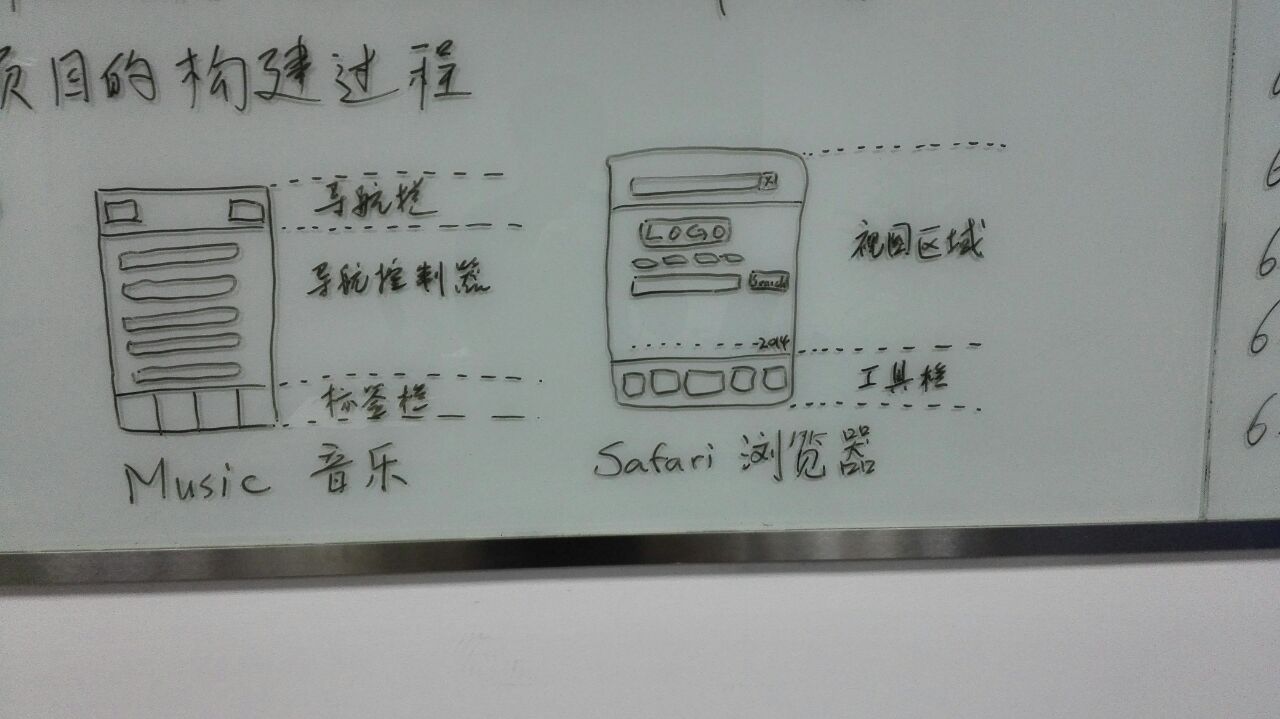 项目的构建过程
导航栏
导航控制器
标签栏
Music 音乐
X
LOGO
Search
2014
视图区域
工具栏
Safari 浏览器
6
6
6
6